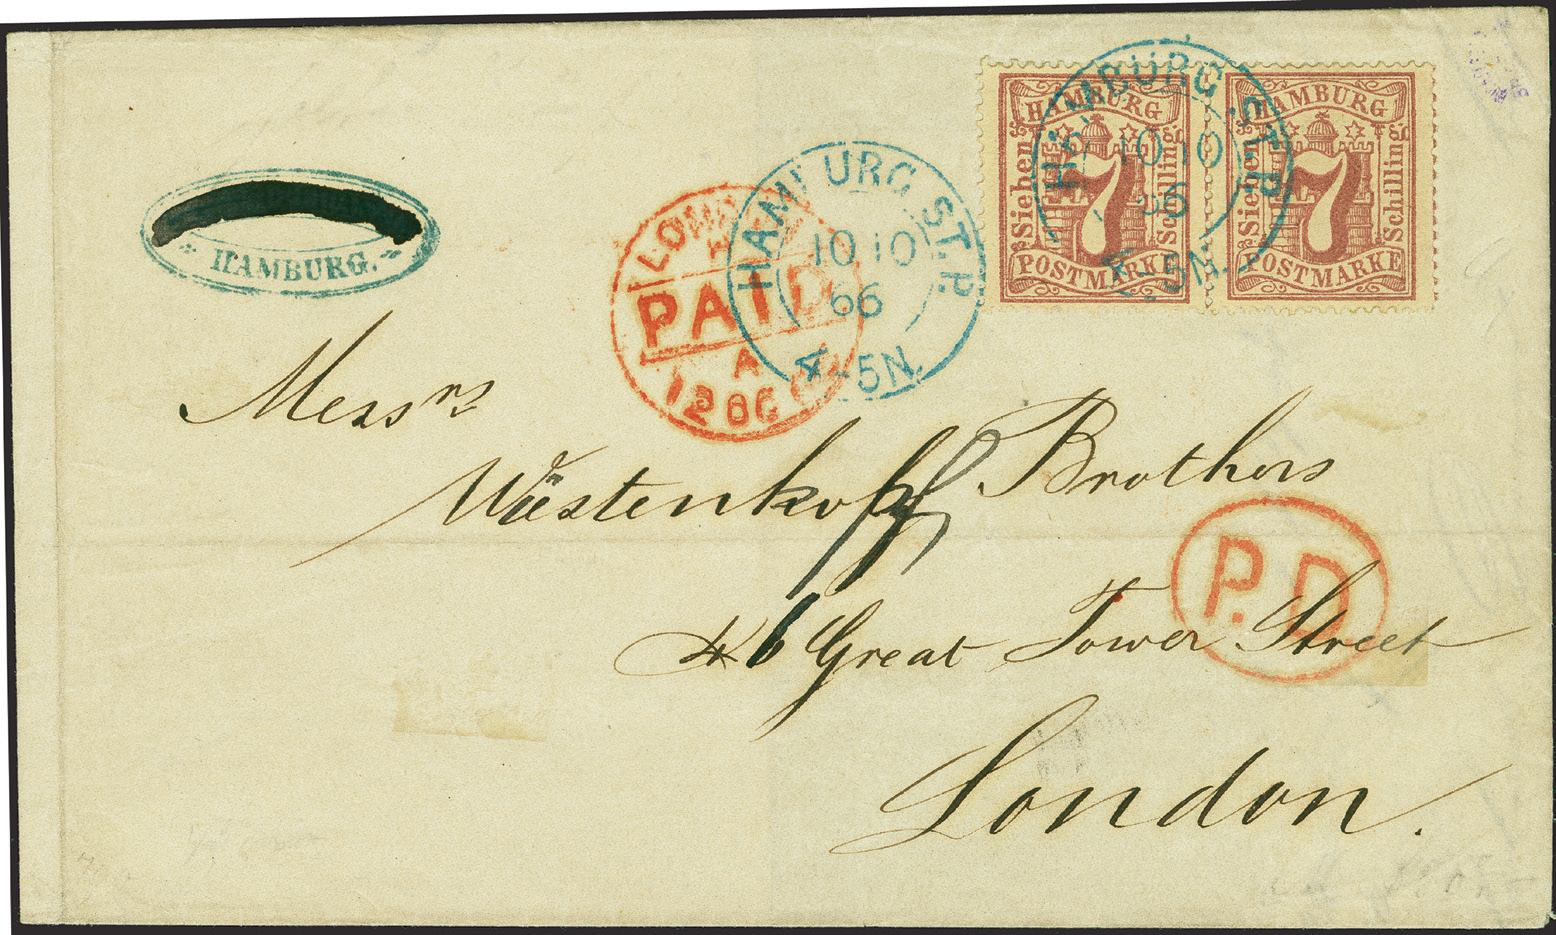 HAMBURG.
LONDON
PAID
A
12 OC 66
HAMBURG ST.P.
10 10
66
4-5N.
HAMBURG ST.P.
10 10
66
4-5N.
HAMBURG
Sieben 7 Schilling
POSTMARKE
HAMBURG
Sieben 7 Schilling
POSTMARKE
Messrs
Wüstenkoff Brothers
P.D
46 Great Tower Street
London.